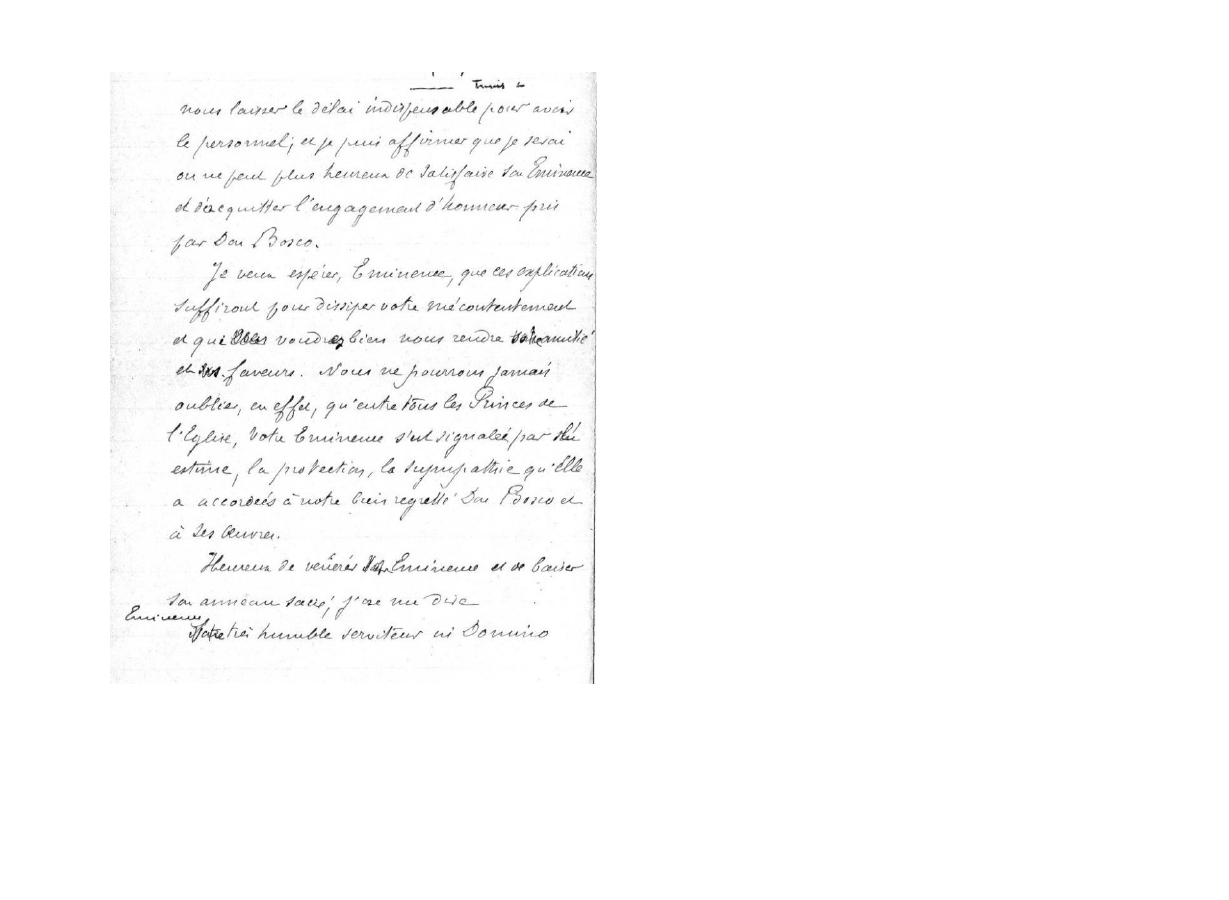 Tunis
nous laisser le délai indispensable pour avoir
le personnel; et je puis affirmer que je serai
on ne peut plus heureux de satisfaire Son Eminence
et d'acquitter l'engagement d'honneur pris
par Don Bosco.
Je veux espérer, Eminence, que ces explications
suffiront pour dissiper votre mécontentement
et que voudrez bien nous rendre votre amitié
et faveurs. Nous ne pourrons jamais
oublier, en effet, qu'entre tous les Princes de
l'Eglise, Votre Eminence s'est signalée par
estime, la protection, la sympathie qu'Elle
a accordées à notre bien regretté Don Bosco et
à ses œuvres.
Heureux de vénérer Eminence et de baiser
son anneau sacré, j'ose me dire
Eminence
très humble serviteur in Domino